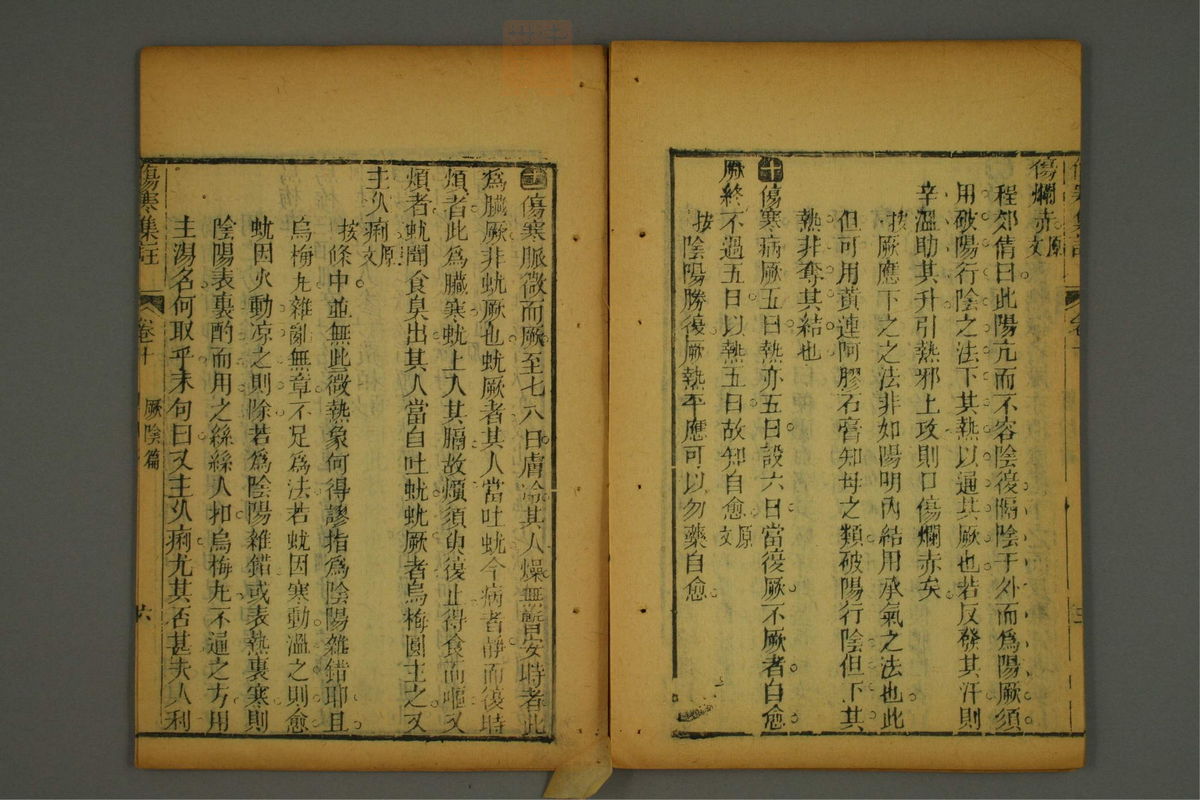 傷爛赤原文
程郊倩曰此陽亢而不容陰復隔陰于外而爲陽厥須
用破陽行陰之法下其熱以通其厥也若反發其汗則
辛溫助其升引熱邪上攻則口傷爛赤矣
按厥應下之之法非如陽明內結用承氣之法也此
但可用黃連阿膠石膏知母之類破陽行陰但下其
熱非奪其結也
傷寒病厥五日熱亦五日設六日當復厥不厥者自愈
厥終不過五日以熱五日故知自愈原文
按陰陽勝復厥熱平應可以勿藥自愈
傷寒脈微而厥至七八日膚冷其人燥無暫安時者此
爲臟厥非蚘厥也蚘厥者其人當吐蚘今病者靜而復時
煩者此爲臟寒蚘上入其膈故煩須臾復止得食而嘔又
煩者蚘聞食臭出其人當自吐蚘蚘厥者烏梅圓主之又
主久痢原文
按條中並無此微熱象何得謬指爲陰陽雜錯耶且
烏梅丸雜亂無章不足爲法若蚘因寒動溫之則愈
蚘因火動凉之則除若爲陰陽雜錯或表熱裏寒則
陰陽表裏酌而用之絲絲入扣烏梅丸不通之方用
主湯名何取乎末句曰又主久痢尤其否甚夫久利
傷寒集註
卷十
厥陰篇
六